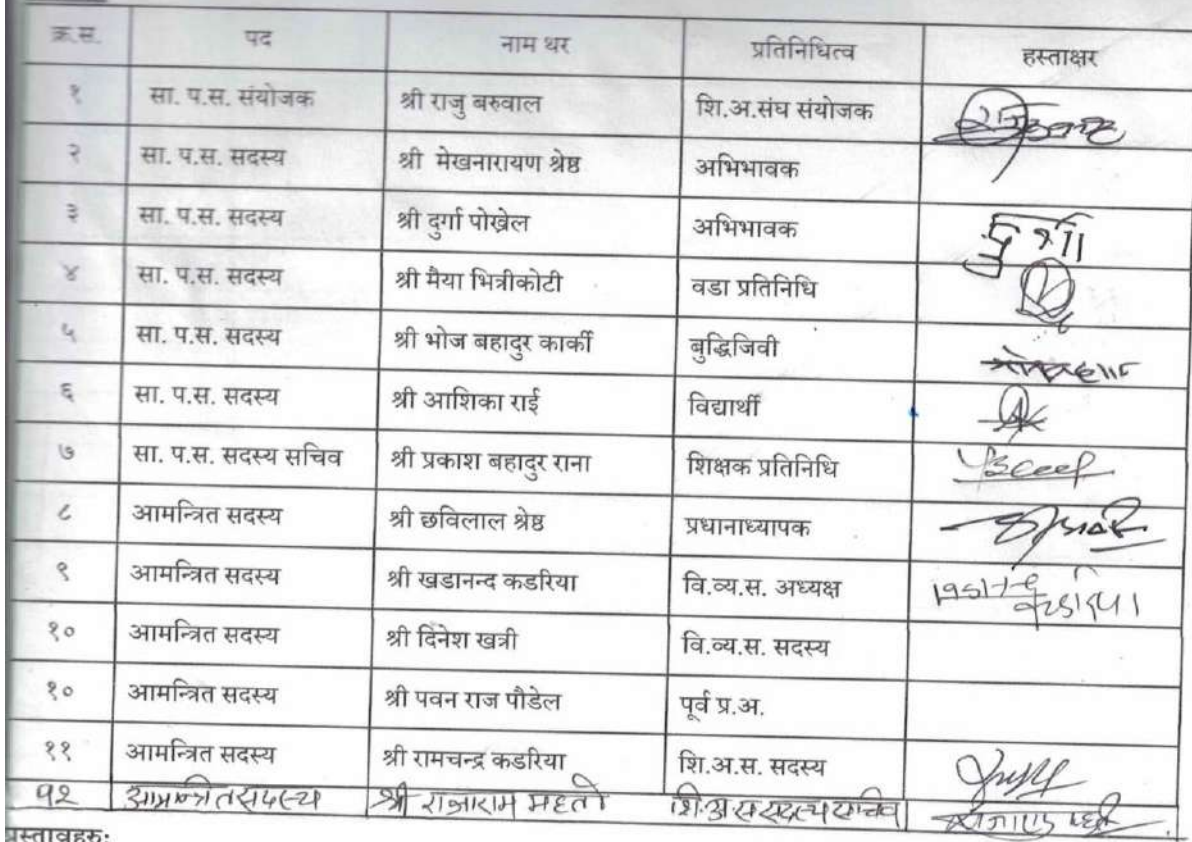 क्र.स. पद नाम थर प्रतिनिधित्व हस्ताक्षर
१ सा. प.स. संयोजक श्री राजु बरुवाल शि.अ.संघ संयोजक
२ सा. प.स. सदस्य श्री मेखनारायण श्रेष्ठ अभिभावक
३ सा. प.स. सदस्य श्री दुर्गा पोख्रेल अभिभावक दुर्गा
४ सा. प.स. सदस्य श्री मैया भित्रीकोटी वडा प्रतिनिधि
५ सा. प.स. सदस्य श्री भोज बहादुर कार्की बुद्धिजिवी
६ सा. प.स. सदस्य श्री आशिका राई विद्यार्थी
७ सा. प.स. सदस्य सचिव श्री प्रकाश बहादुर राना शिक्षक प्रतिनिधि
८ आमन्त्रित सदस्य श्री छविलाल श्रेष्ठ प्रधानाध्यापक
९ आमन्त्रित सदस्य श्री खडानन्द कडरिया वि.व्य.स. अध्यक्ष
१० आमन्त्रित सदस्य श्री दिनेश खत्री वि.व्य.स. सदस्य
१० आमन्त्रित सदस्य श्री पवन राज पौडेल पूर्व प्र.अ.
११ आमन्त्रित सदस्य श्री रामचन्द्र कडरिया शि.अ.स. सदस्य
१२ आमन्त्रित सदस्य श्री राजाराम महतो शि.अ.स सदस्य सचिव
प्रस्तावहरु: